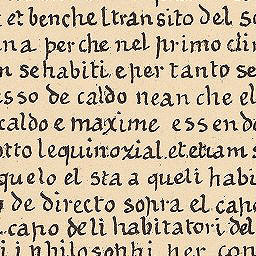 et benche l transito del so
na perche nel primo clim
n se habiti e per tanto se
sso de caldo ne an che el
caldo e maxime essendo
otto lequinozial. et. etiam s
quelo el sta a queli habi
de directo sopra el capo
capo de li habitatori del
i philosophi per con